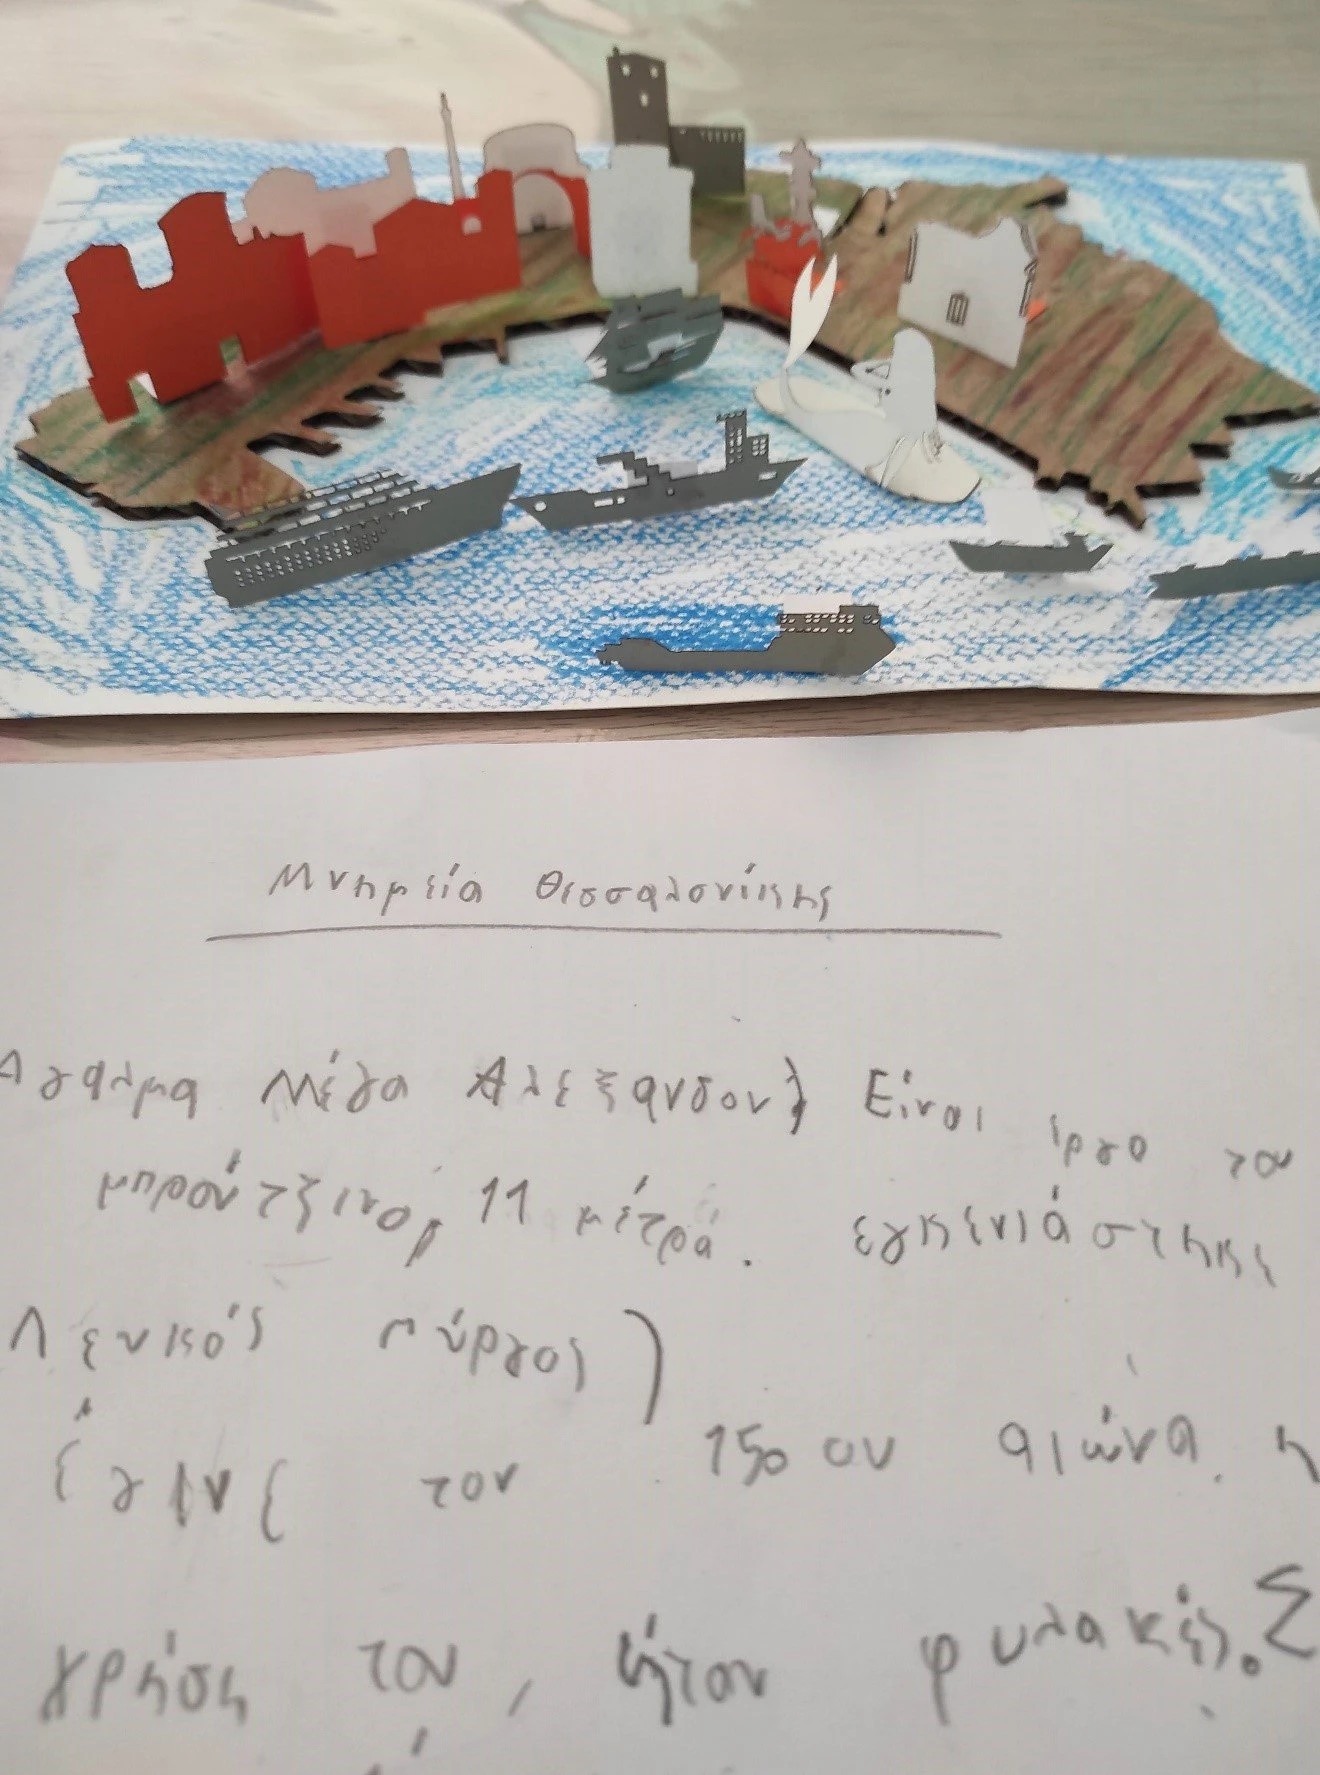 Μνημεία Θεσσαλονίκης
Αγαλμα Μέγα Αλεξανδου} Είναι έργο του
μπρούτζινο, 11 μέτρα. εγκενιάστηκε
Λευκός πύργος)
έγινε τον 15ο ον αιώνα. η
χρήση του, ήταν φυλακές. Σ